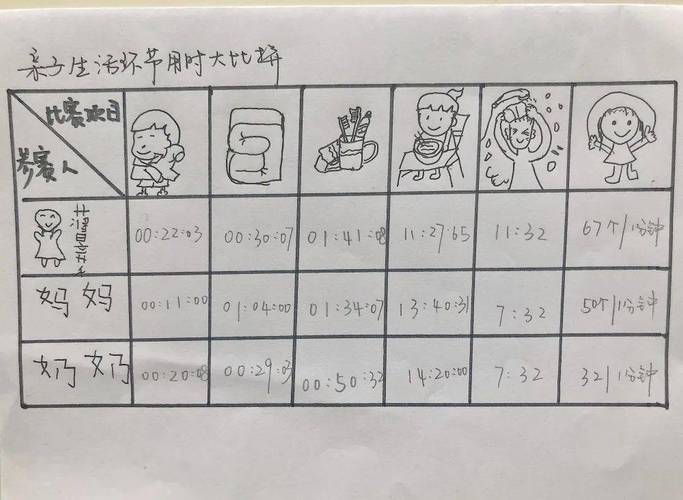 亲子生活环节用时大比拼
比赛项目
参赛人
00:22:03 00:30:07 01:41:08 11:27:65 11:32 67个/1分钟
妈妈 00:11:00 01:04:00 01:34:07 13:40:31 7:32 50个/1分钟
奶奶 00:20:08 00:29:03 00:50:32 14:20:00 7:32 32/1分钟